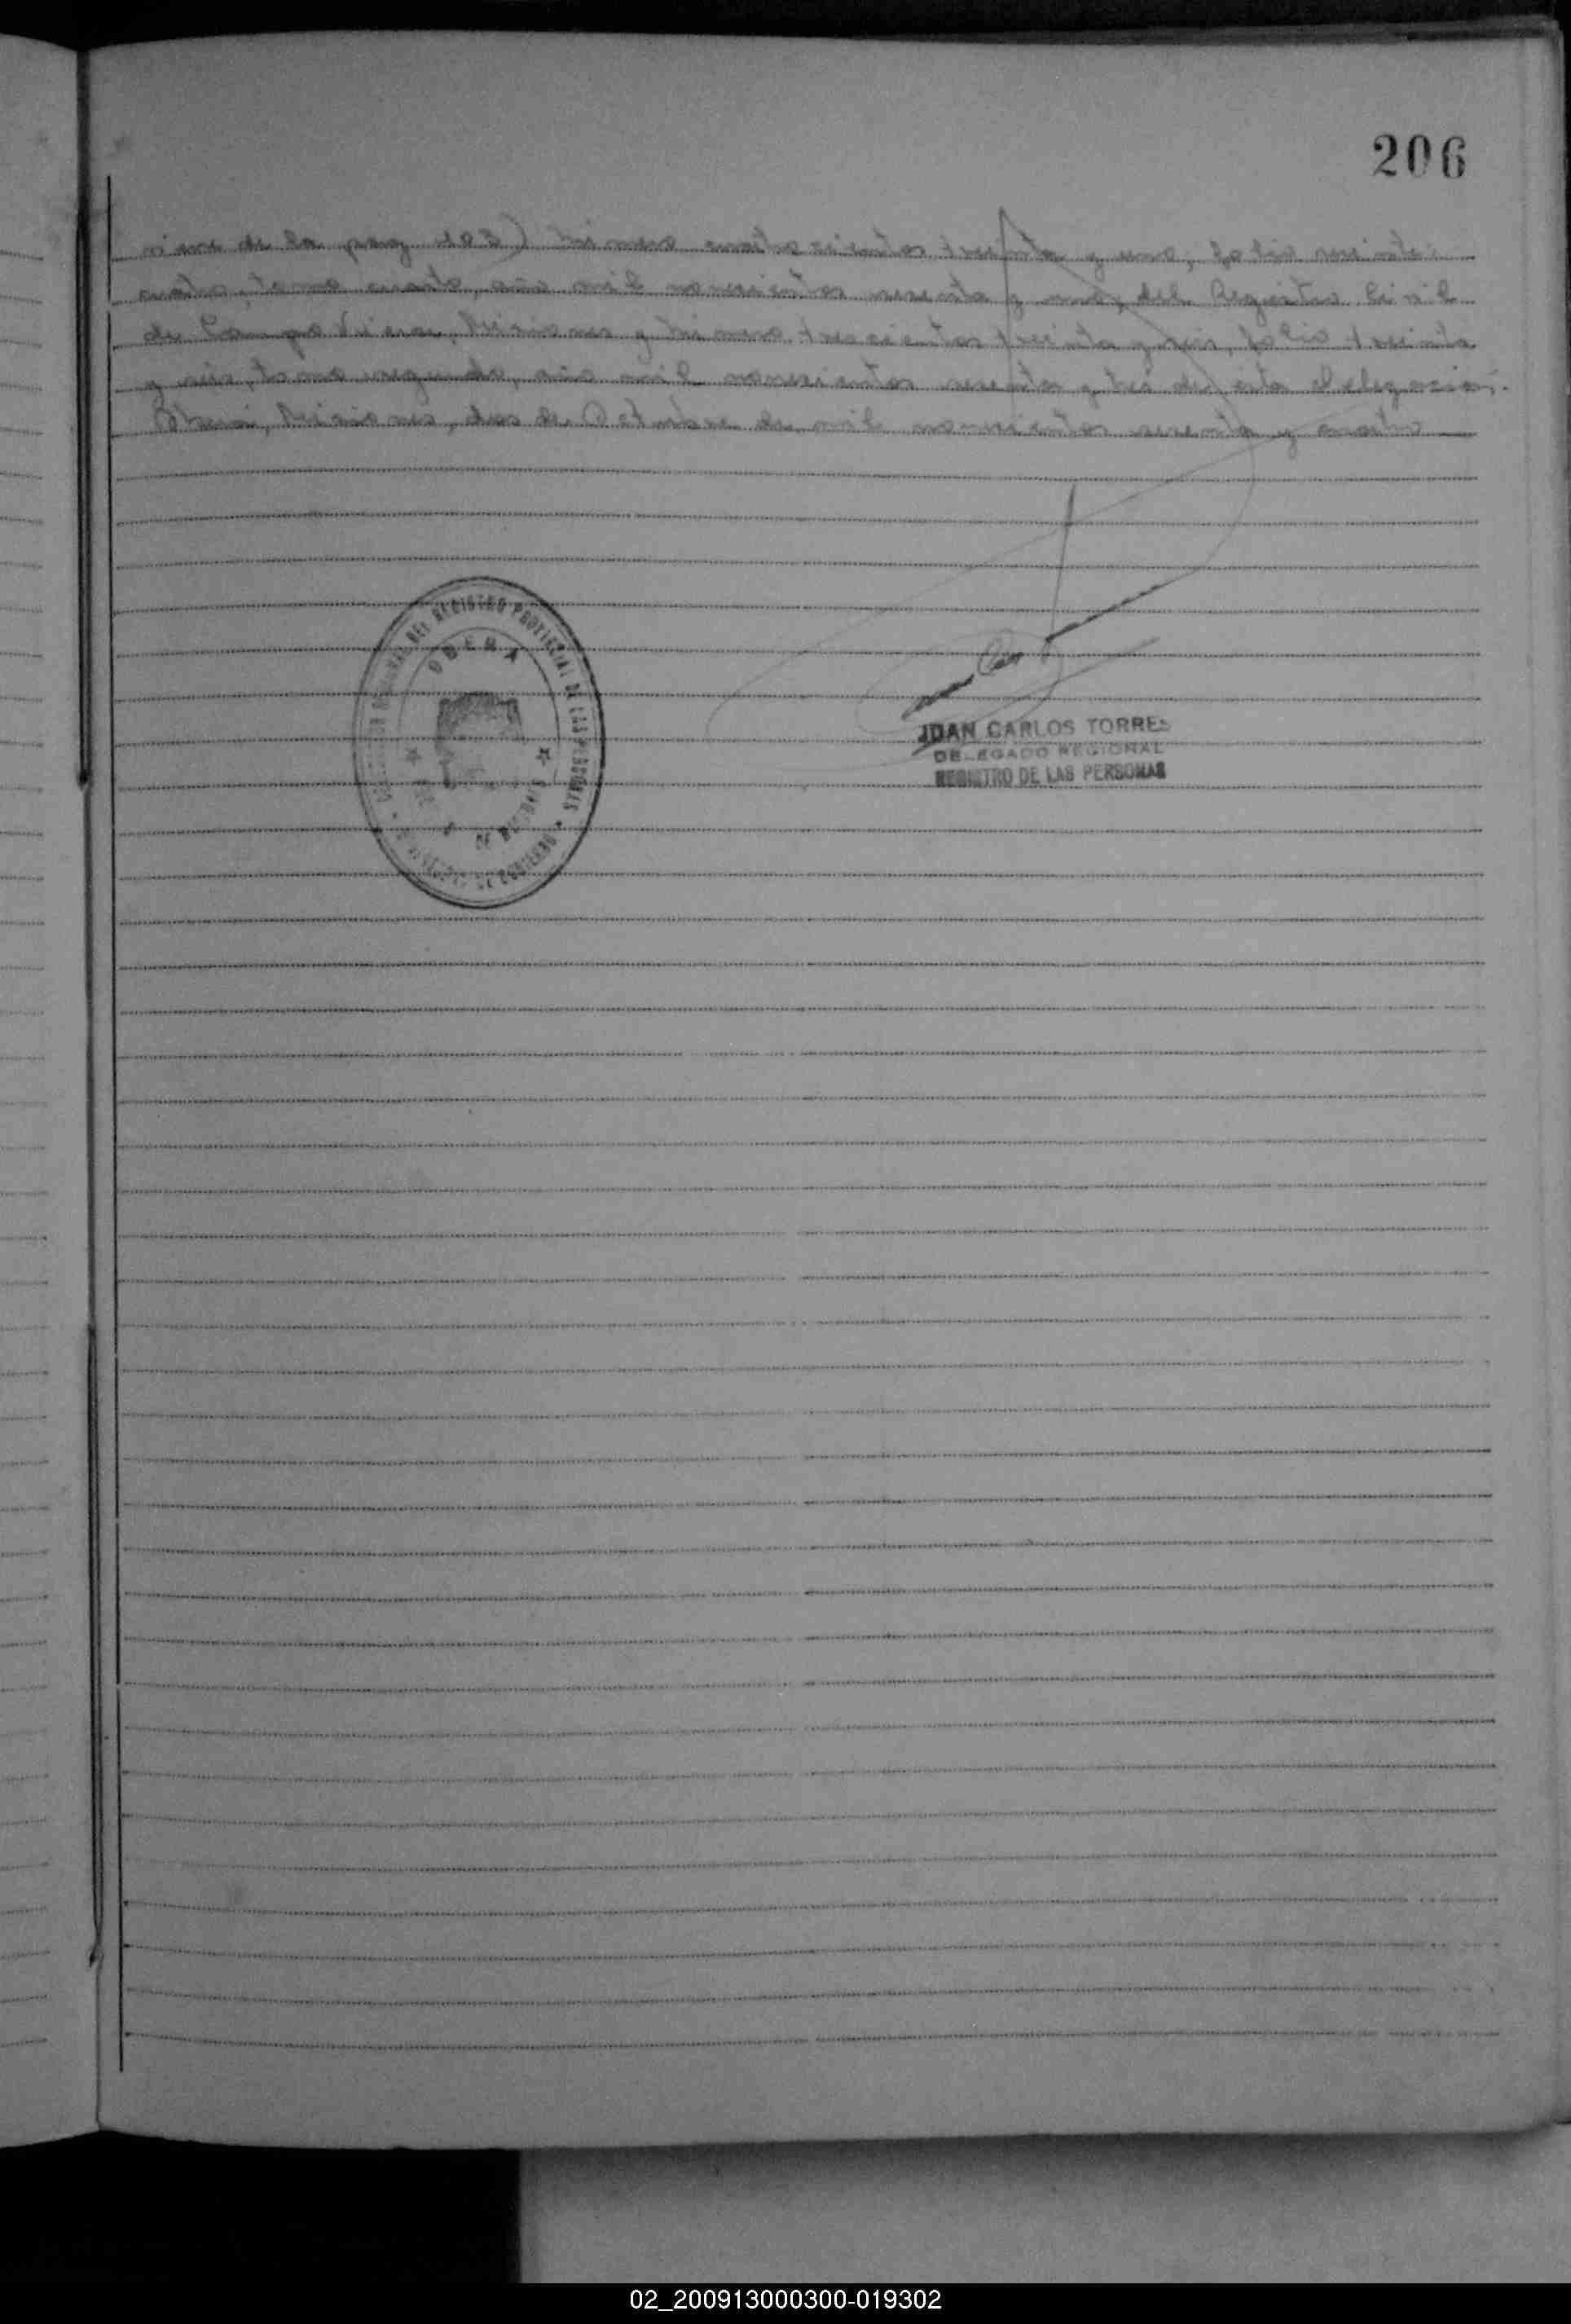 206
viene de la pag 103) número cuatrocientos treinta y uno, folio veinti-
cuatro, tomo cuarto, año mil novecientos sesenta y uno, del Registro Civil
de Campo Viera, Misiones y número trescientos treinta y seis, folio treinta
y seis, tomo segundo, año mil novecientos sesenta y tres de esta Delegación.-
Oberá, Misiones, dos de Octubre de mil novecientos sesenta y cuatro
REGIONAL DEL REGISTRO PROVINCIAL DE LAS PERSONAS
OBERA
JUAN CARLOS TORRES
DELEGADO REGIONAL
REGISTRO DE LAS PERSONAS
02_200913000300-019302